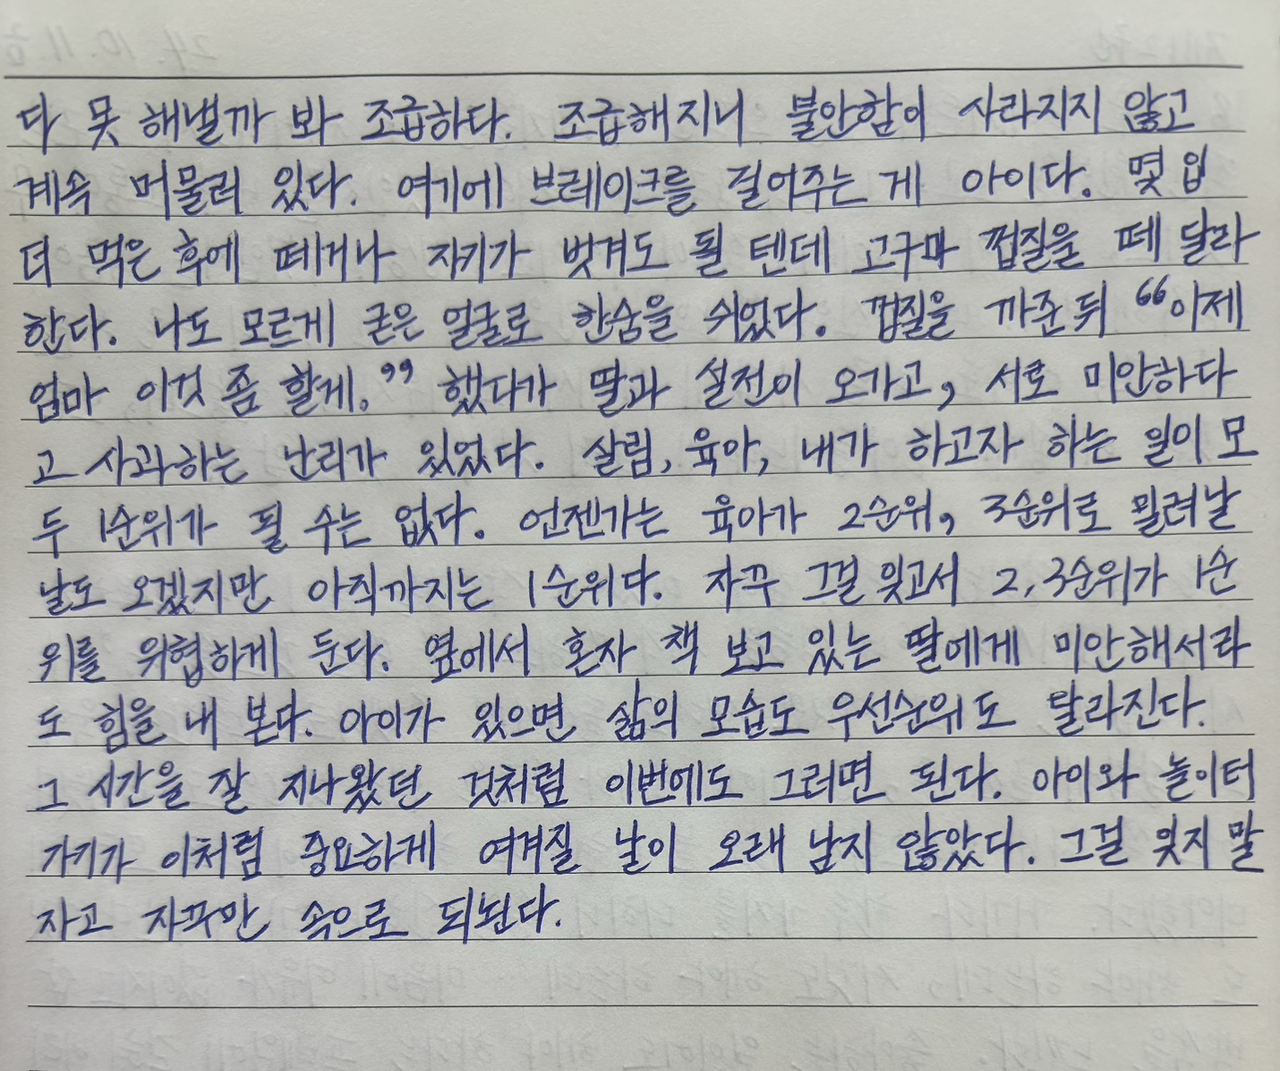 다 못 해낼까 봐 조급하다. 조급해지니 불안함이 사라지지 않고
계속 머물러 있다. 여기에 브레이크를 걸어주는 게 아이다. 몇 입
더 먹은 후에 떼거나 자기가 벗겨도 될 텐데 고구마 껍질을 떼 달라
한다. 나도 모르게 굳은 얼굴로 한숨을 쉬었다. 껍질을 까준 뒤 “이제
엄마 이것 좀 할게.” 했다가 딸과 설전이 오가고, 서로 미안하다
고 사과하는 난리가 있었다. 살림, 육아, 내가 하고자 하는 일이 모
두 1순위가 될 수는 없다. 언젠가는 육아가 2순위, 3순위로 밀려날
날도 오겠지만 아직까지는 1순위다. 자꾸 그걸 잊고서 2, 3순위가 1순
위를 위협하게 둔다. 옆에서 혼자 책 보고 있는 딸에게 미안해서라
도 힘을 내 본다. 아이가 있으면 삶의 모습도 우선순위도 달라진다.
그 시간을 잘 지나왔던 것처럼 이번에도 그러면 된다. 아이와 놀이터
가기가 이처럼 중요하게 여겨질 날이 오래 남지 않았다. 그걸 잊지 말
자고 자꾸만 속으로 되뇐다.